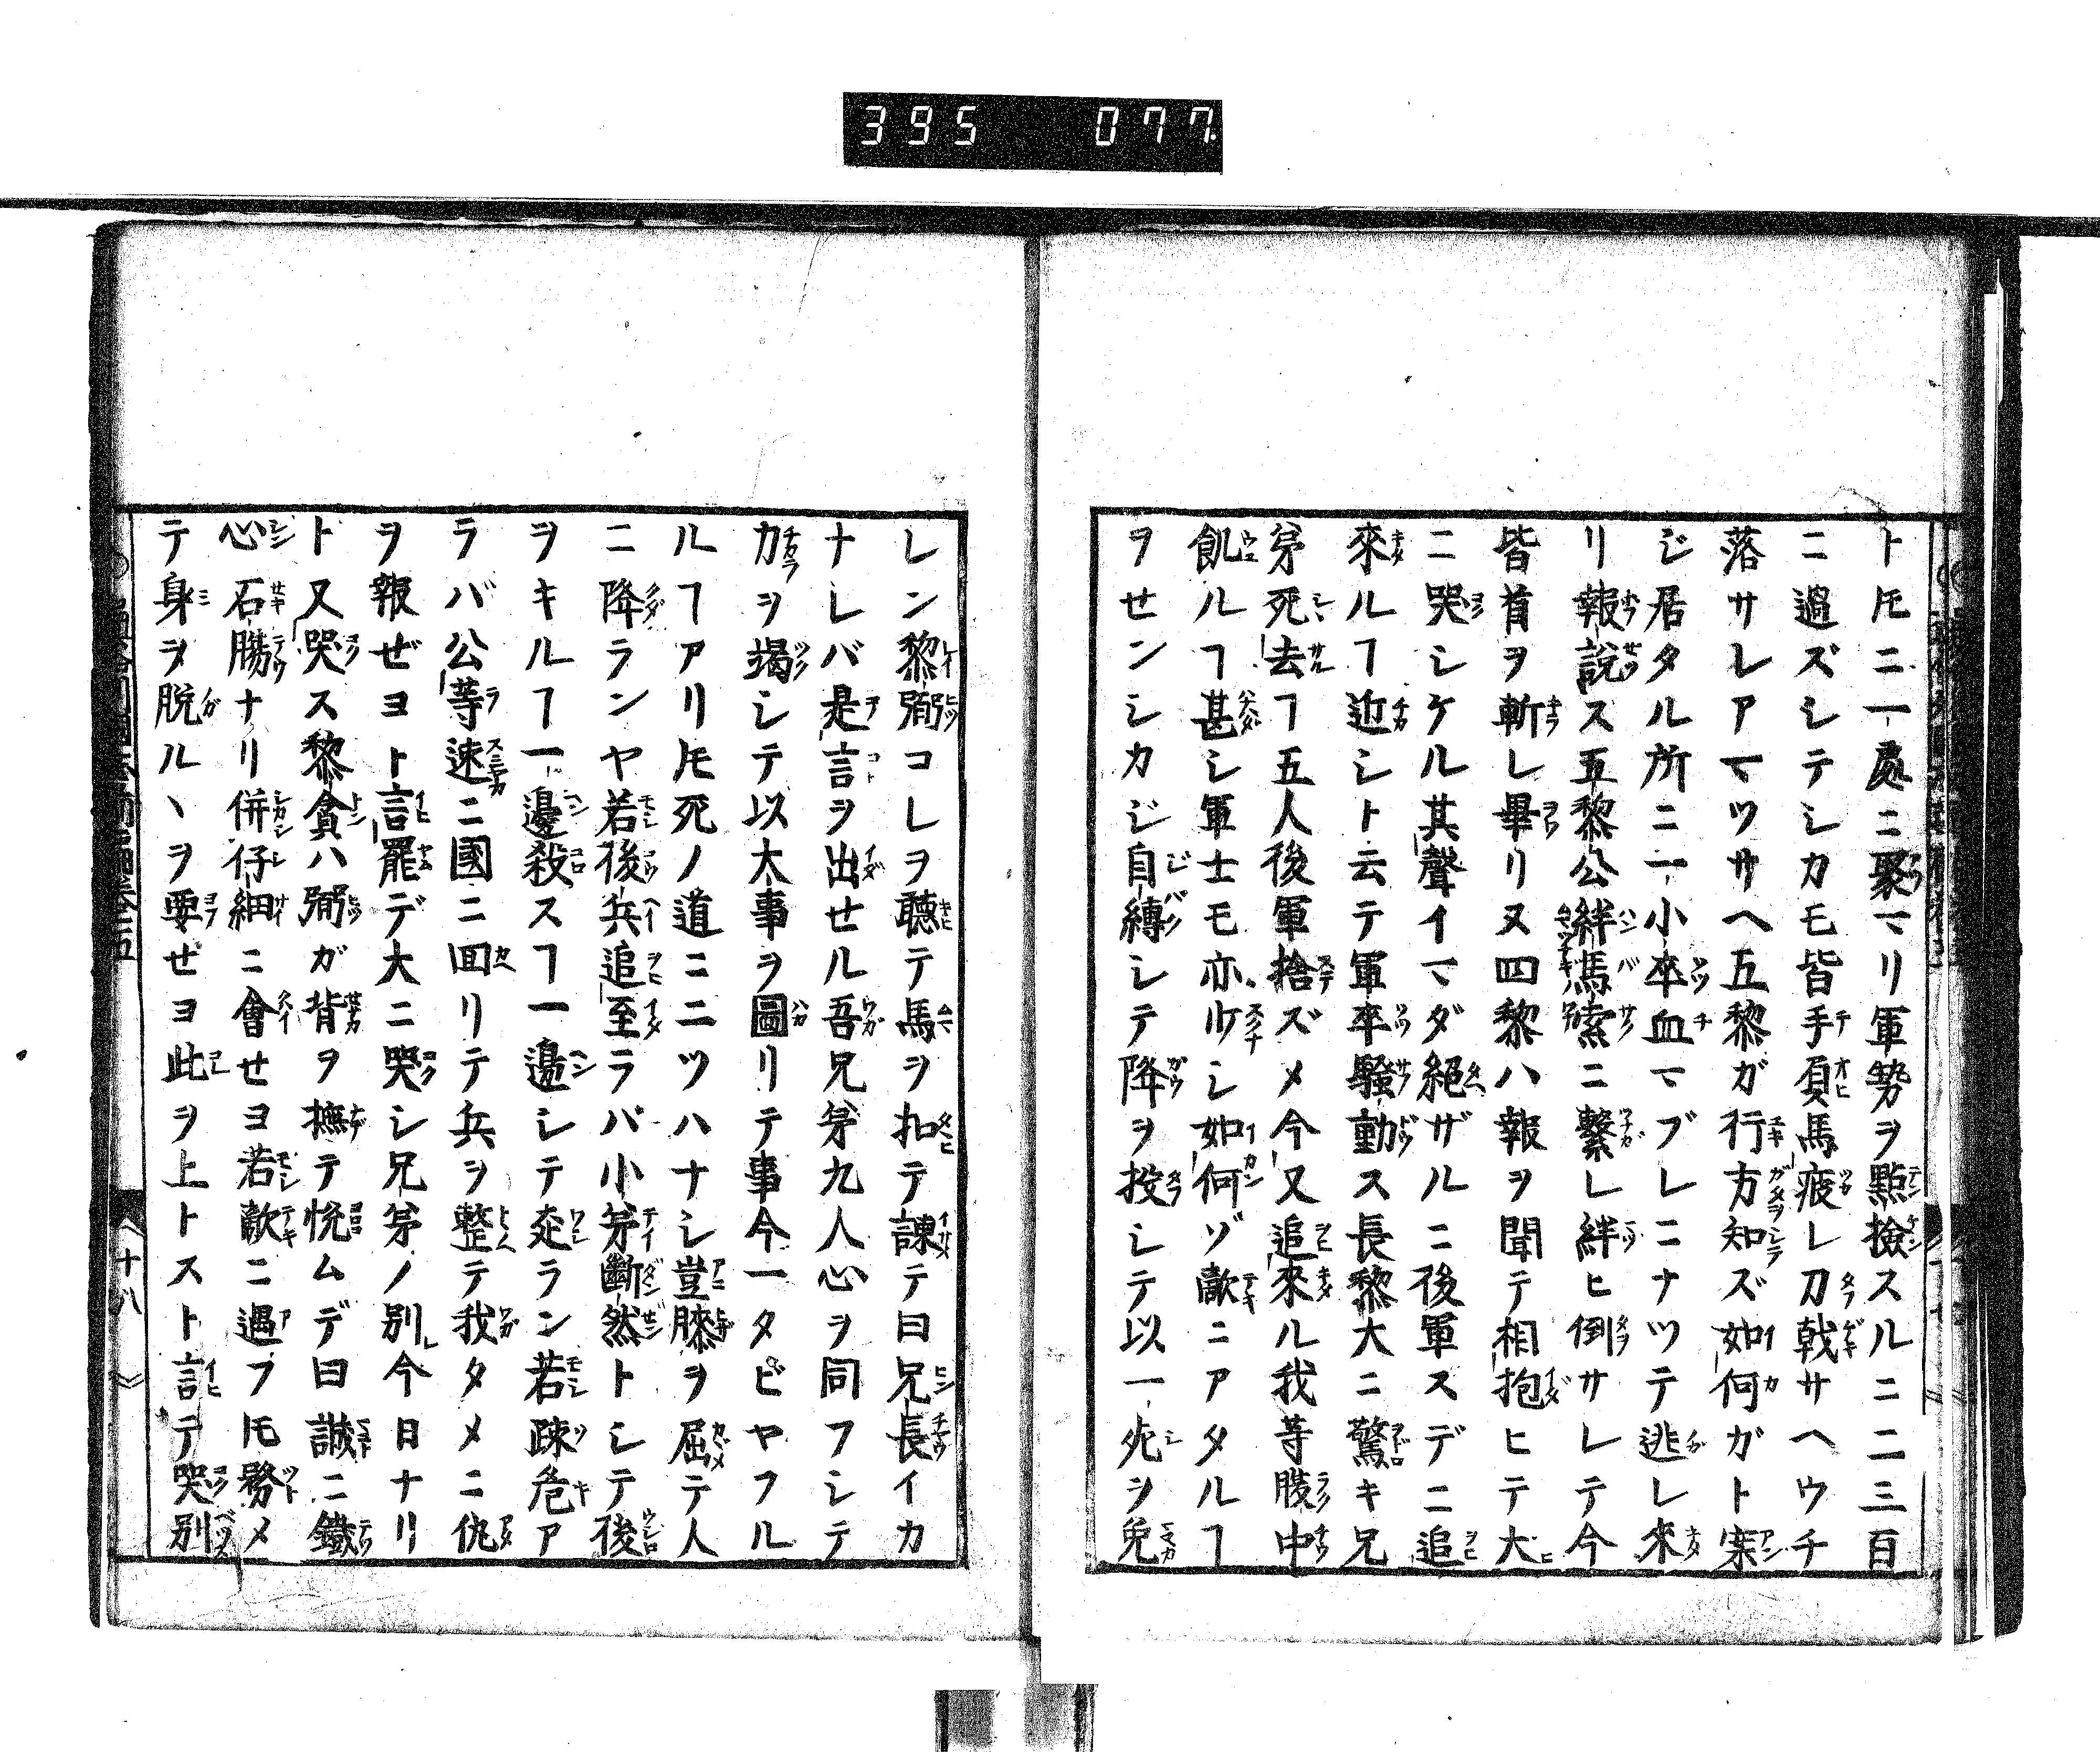 395 077
トモニ一處ニ聚マリ軍勢ヲ點撿スルニ二三百
ニ過ズシテシカモ皆手負馬疲レ刀戟サヘウチ
落サレアマツサヘ五黎ガ行方知ズ如何ガト案
ジ居タル所ニ一小卒血マブレニナツテ逃レ來
リ報說ス五黎公絆馬索ニ繫レ絆ヒ倒サレテ今
皆首ヲ斬レ畢リヌ四黎ハ報ヲ聞テ相抱ヒテ大
ニ哭シケル其聲イマダ絕ザルニ後軍スデニ追
來ルヿ近シト云テ軍卒騷動ス長黎大ニ驚キ兄
弟死去ヿ五人後軍捨ズメ今又追來ル我等腹中
飢ルヿ甚シ軍士モ亦少シ如何ゾ敵ニアタルヿ
ヲセンシカジ自縛シテ降ヲ投シテ以一死ヲ免
レン黎弻コレヲ聽テ馬ヲ扣テ諌テ曰兄長イカ
ナレバ是言ヲ出セル吾兄弟九人心ヲ同フシテ
力ヲ竭シテ以大事ヲ圖リテ事今一タビヤフル
ルヿアリ𪜈死ノ道ニニツハナシ豈膝ヲ屈テ人
ニ降ランヤ若後兵追至ラバ小弟斷然トシテ後
ヲキルヿ一邊殺スヿ一邊シテ走ラン若疎危ア
ラバ公等速ニ國ニ囬リテ兵ヲ整テ我タメニ仇
ヲ報ゼヨト言罷デ大ニ哭シ兄弟ノ別レ今日ナリ
ト又哭ス黎貪ハ弻ガ背ヲ撫テ悦ムデ曰誠ニ鐵
心石膓ナリ併仔細ニ會セヨ若敵ニ遇フ𪜈務メ
テ身ヲ脫ルヽヲ要ゼヨ此ヲ上トスト言テ哭別
十八